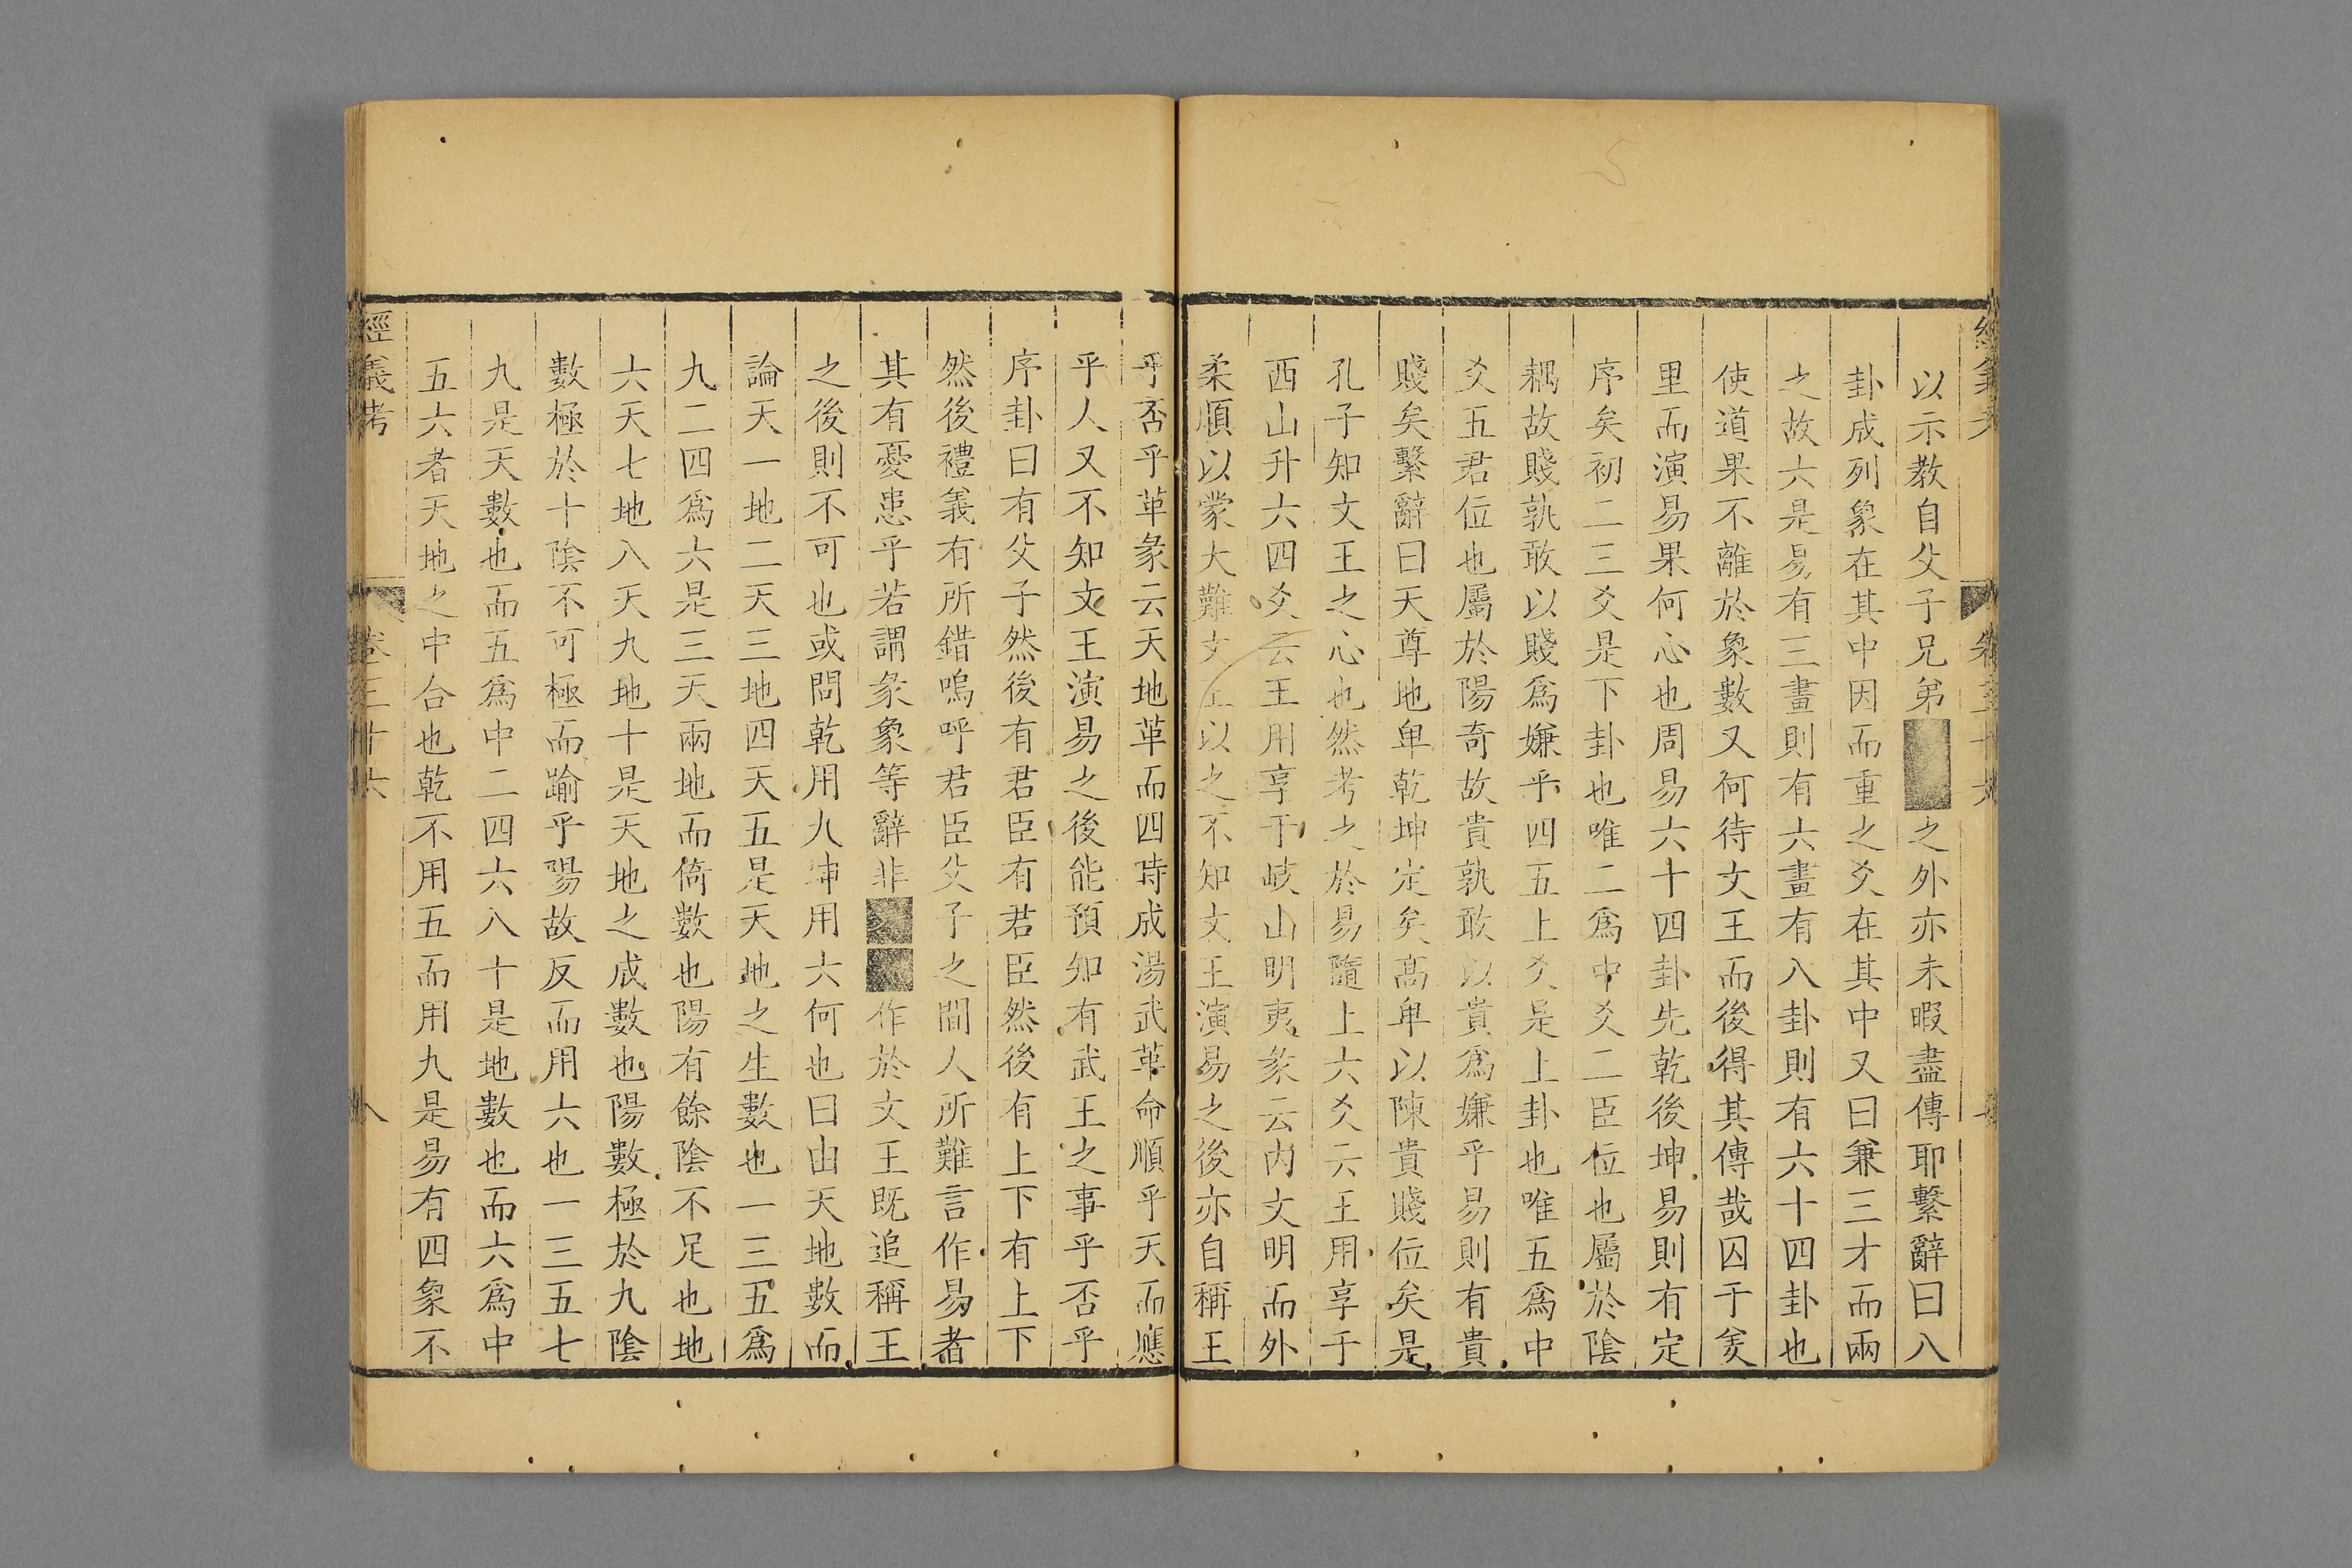 以示教自父子兄弟■■之外亦未暇盡傳耶繫辭曰八
卦成列象在其中因而重之爻在其中又曰兼三才而兩
之故六是易有三畫則有六畫有八卦則有六十四卦也
使道果不離於象數又何待文王而後得其傳哉囚于羑
里而演易果何心也周易六十四卦先乾後坤易則有定
序矣初二三爻是下卦也唯二為中爻二臣位也屬於陰
耦故賤孰敢以賤爲嫌乎四五上爻是上卦也唯五爲中
爻五君位也屬於陽奇故貴孰敢以貴爲嫌乎易則有貴
賤矣繫辭曰天尊地卑乾坤定矣高卑以陳貴賤位矣是
孔子知文王之心也然考之於易隨上六爻云王用享于
西山升六四爻云王用享于岐山明夷彖云内文明而外
柔順以蒙大難文王以之不知文王演易之後亦自稱王
乎否乎革彖云天地革而四時成湯武革命順乎天而應
乎人又不知文王演易之後能預知有武王之事乎否乎
序卦曰有父子然後有君臣有君臣然後有上下有上下
然後禮義有所錯嗚呼君臣父子之間人所難言作易者
其有憂患乎若謂彖象等辭非■■作於文王既追稱王
之後則不可也或問乾用九坤用六何也曰由天地數而
論天一地二天三地四天五是天地之生數也一三五爲
九二四爲六是三天兩地而倚數也陽有餘陰不足也地
六天七地八天九地十是天地之成數也陽數極於九陰
數極於十陰不可極而踰乎陽故反而用六也一三五七
九是天數也而五爲中二四六八十是地數也而六爲中
五六者天地之中合也乾不用五而用九是易有四象不
經義考 卷三十六 八